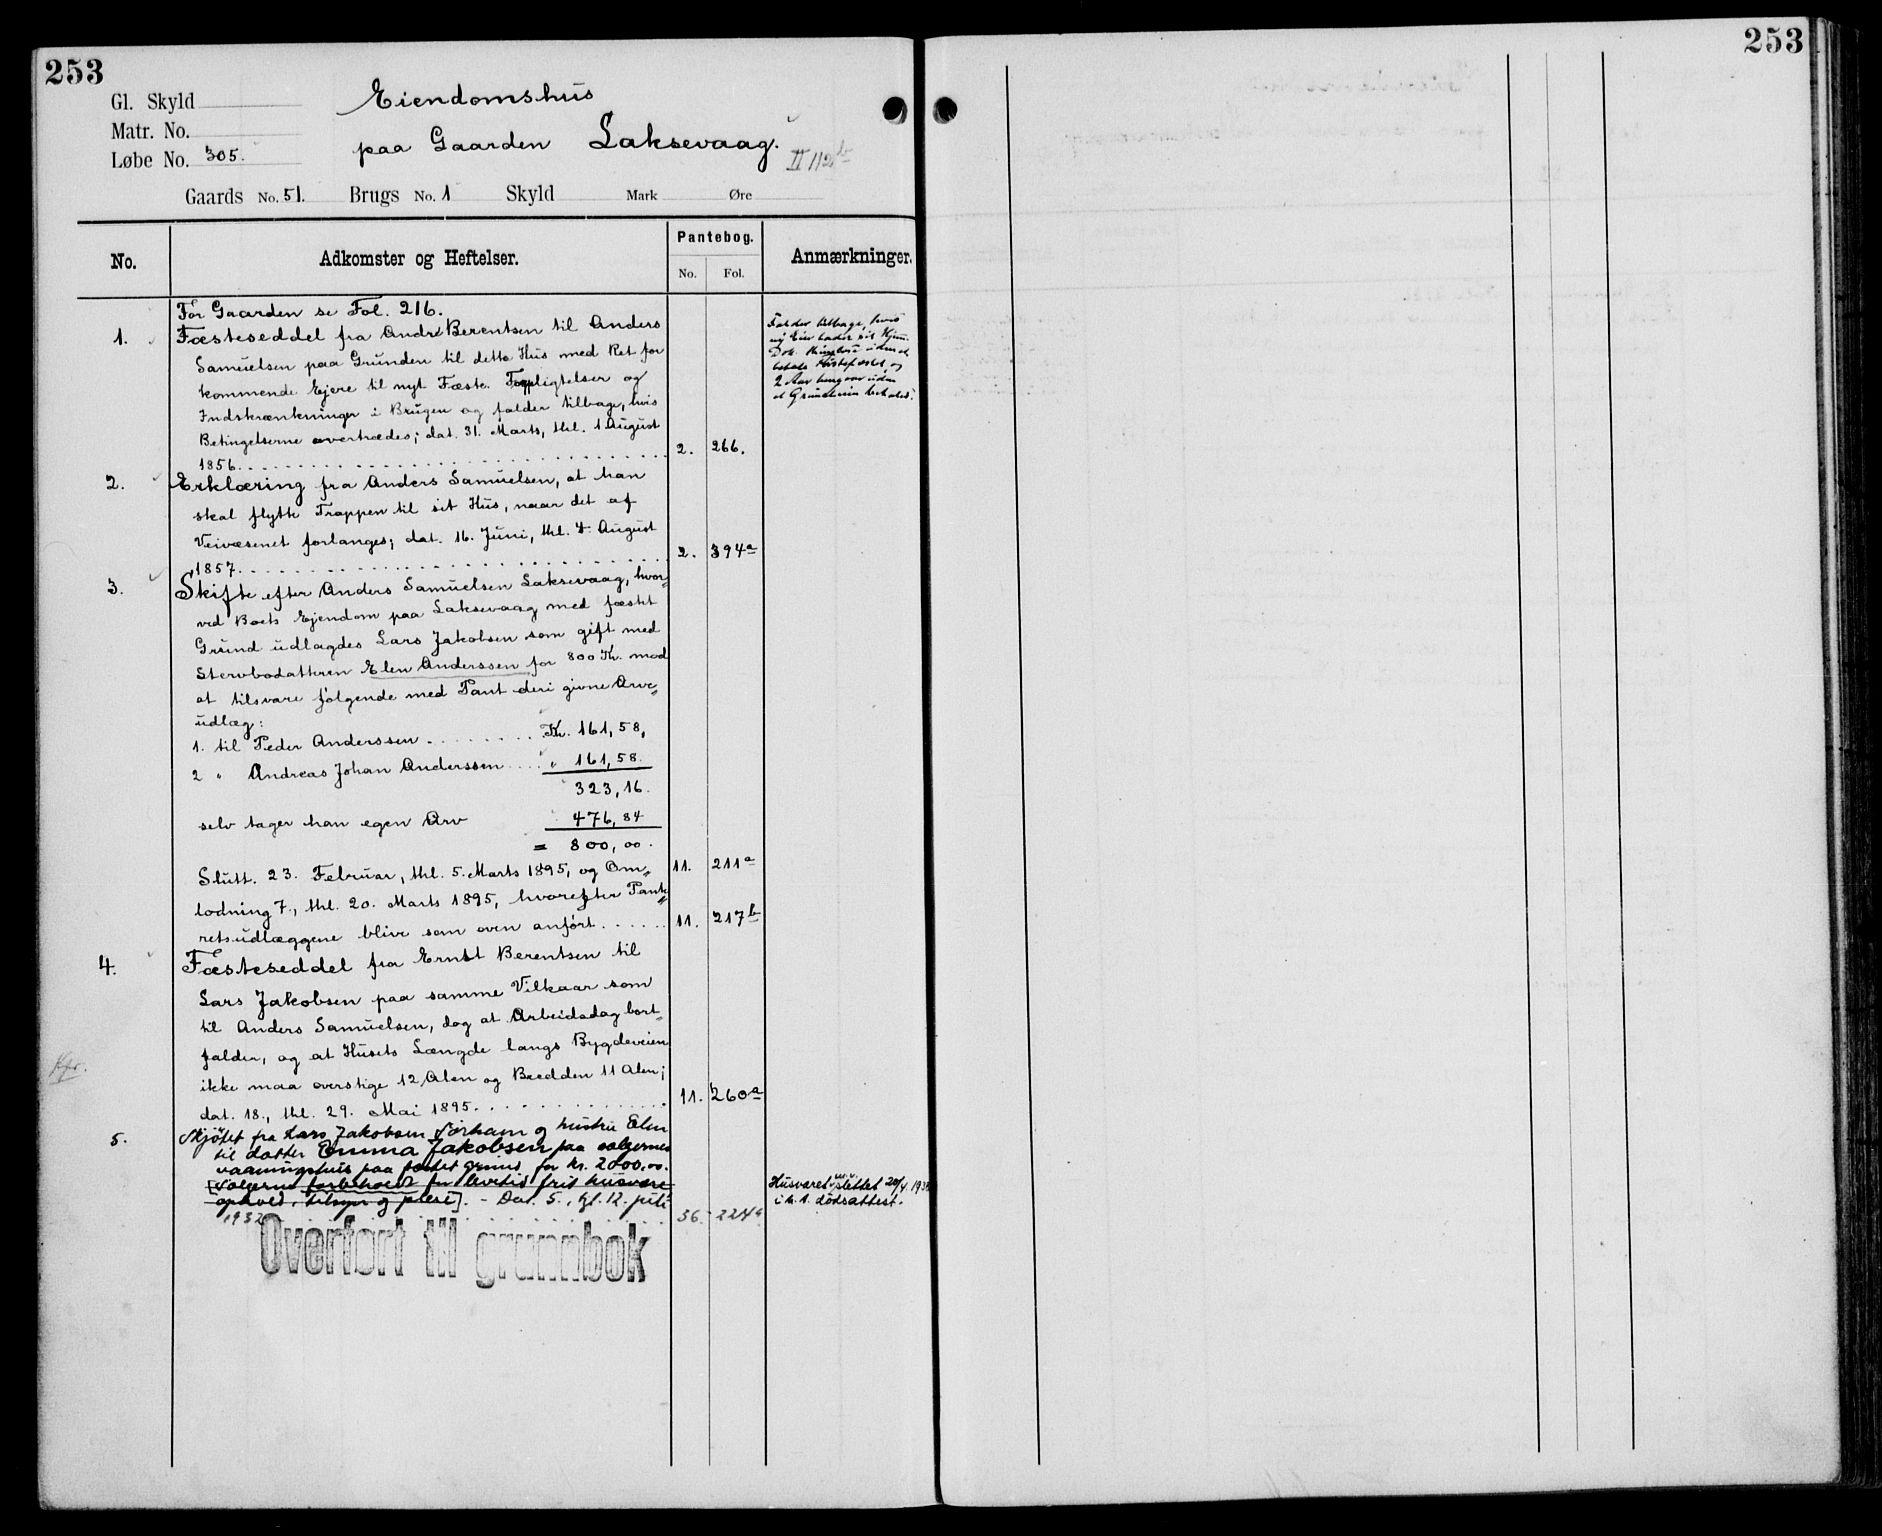 253
253
Gl. Skyld
Eiendomshus
Matr. No.
paa Gaarden Laksevaag.
Løbe No. 305.
II 112b
Gaards No. 51. Brugs No. 1 Skyld Mark Øre
No.
Adkomster og Heftelser.
Pantebog.
No. Fol.
Anmærkninger.
For Gaarden se Fol. 216.
1. Fæsteseddel fra André Berentsen til Anders
Samuelsen paa Grunden til dette Hus med Ret for
kommende Ejere til nyt Fæste. Forpligtelser og
Indskrænkninger i Brugen og falder tilbage, hvis
Betingelserne overtrædes; dat. 31. Marts, thl. 1 August
1856. 2. 266.
Falder tilbage, hvis
ny Eier
2 Aar hengaar uden
at Grundleien betales.
2. Erklæring fra Anders Samuelsen, at han
skal flytte Trappen til sit Hus, naar det af
Veivæsenet forlanges; dat. 16. Juni, thl. 4. August
1857. 2. 394a
3. Skifte efter Anders Samuelsen Laksevaag, hvor-
ved Boets Ejendom paa Laksevaag med fæstet
Grund udlagdes Lars Jakobsen som gift med
Stervbodatteren Elen Anderssen for 800 Kr. mod
at tilsvare følgende med Pant deri givne Arve-
udlæg:
1. til Peder Anderssen Kr. 161,58,
2 " Andreas Johan Anderssen " 161,58.
323,16.
selv tager han egen Arv 476,84
= 800,00.
Slutt. 23. Februar, thl. 5. Marts 1895, og Om- 11. 211a
lodning 7., thl. 20. Marts 1895, hvorefter Pante-
retsudlæggene blive som oven anført 11. 217b
4. Fæsteseddel fra Ernst Berentsen til
Lars Jakobsen paa samme Vilkaar som
til Anders Samuelsen, dog at Arbeidsdag bort-
falder, og at Husets Længde langs Bygdeveien
Kfr.
ikke maa overstige 12 Alen og Bredden 11 Alen;
dat. 18., thl. 29. Mai 1895. 11. 260a
5. Skjøtet fra Lars Jakobsen Sørham og hustru Elen
til datter Emma Jakobsen paa sælgernes
vaaningshus paa festet grund for kr. 2000,00.
[Sælgerne forbeholdt for levetid frit husvære
ophold, tilsyn og pleie]. - Dat. 5., tgl. 12. juli
1932 56. 224a
Husværet m.v. slettet 20/4 1938
i h.t. dødsattest.
Overført til grunnbok